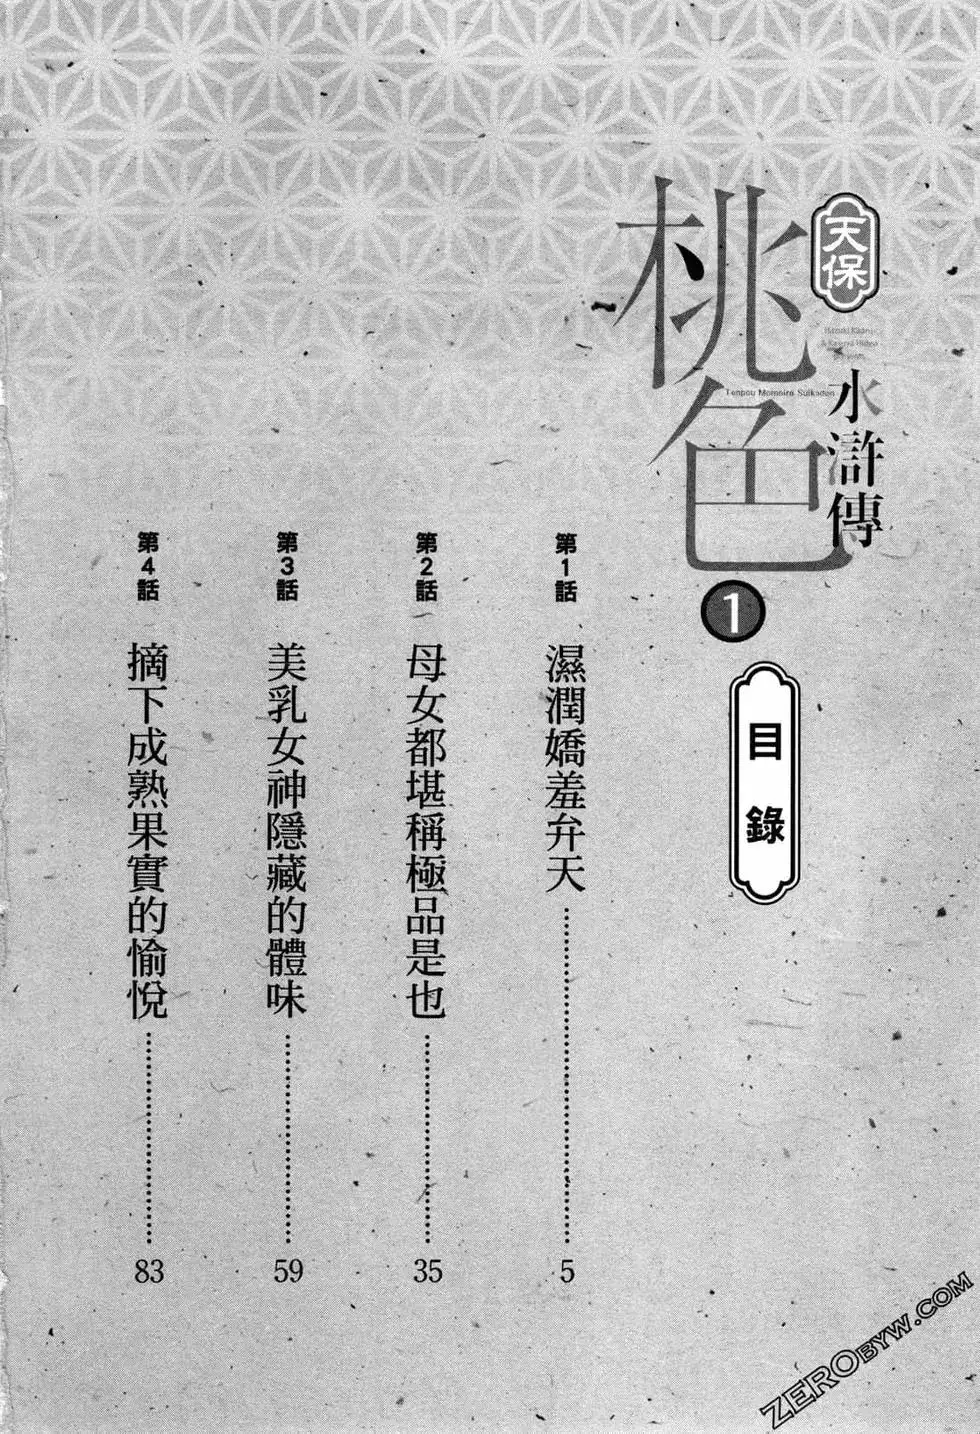 天保
桃色
水滸傳
Tenpou Momoiro Suikoden
1
目錄
第1話 濕潤嬌羞弁天 5
第2話 母女都堪稱極品是也 35
第3話 美乳女神隱藏的體味 59
第4話 摘下成熟果實的愉悅 83
ZEROBYW.COM